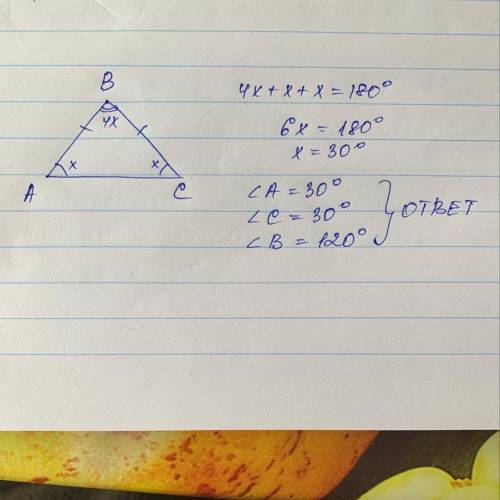 B
4x
x
x
A
C
4x + x + x = 180°
6x = 180°
x = 30°
∠A = 30°
∠C = 30°
∠B = 120°
ОТВЕТ